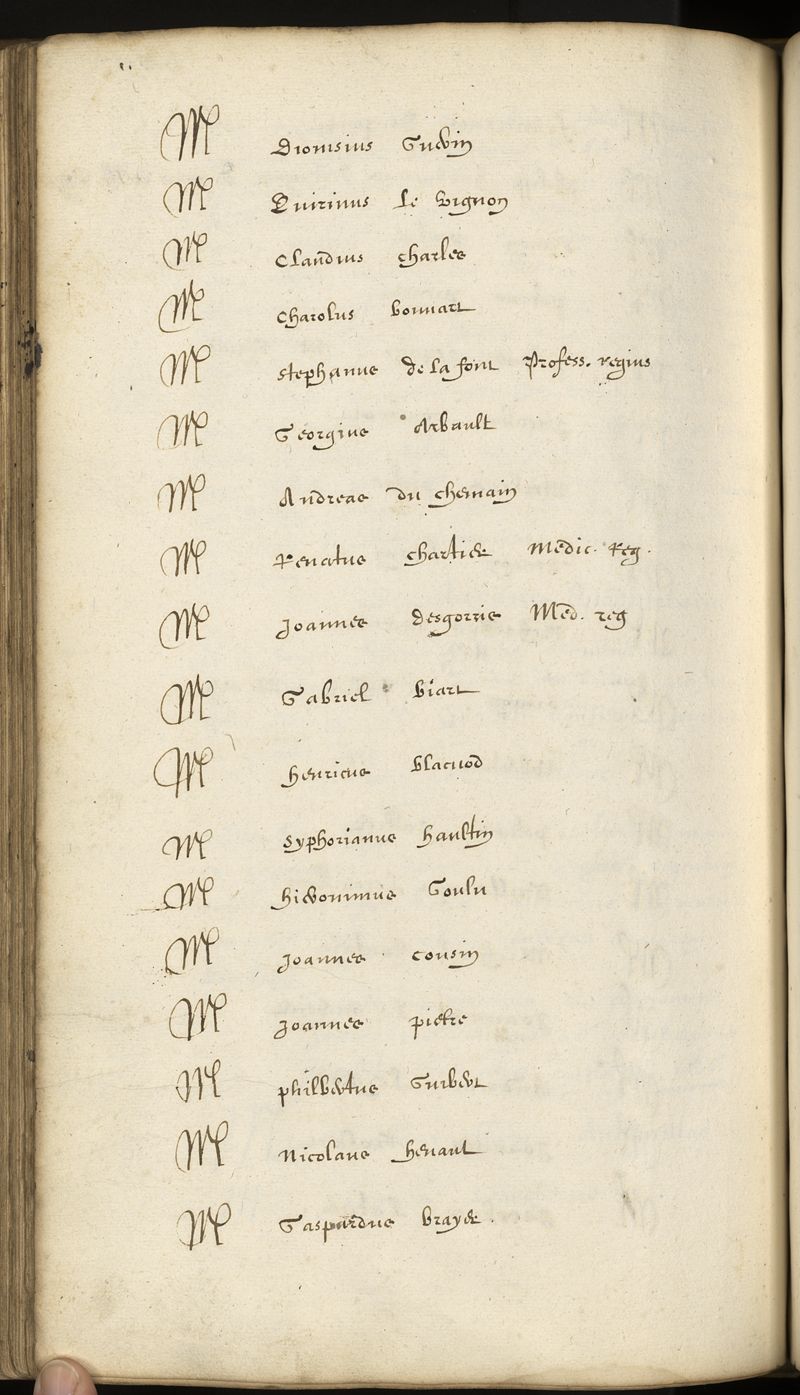 M Dionisius Guérin
M Quirinus le Vignon
M Claudius Charles
M Charolus Bonnart
M Stephanus de la font Profess. regius
M Georgius Arbault
M Andreas du Chemain
M Renatus Chartier Medic. Reg.
M Joannes desgorris Med. reg
M Gabriel Biart
M Henricus Blacuod
M Syphorianus Haultin
M Hieronimus Goulu
M Joannes Cousin
M Joannes pietre
M philbertus Guibert
M Nicolaus Henaut
M Gaspardus Brayer.